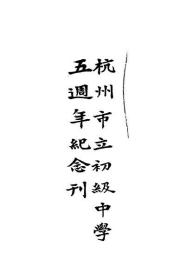 杭州市立初級中學
五週年紀念刊